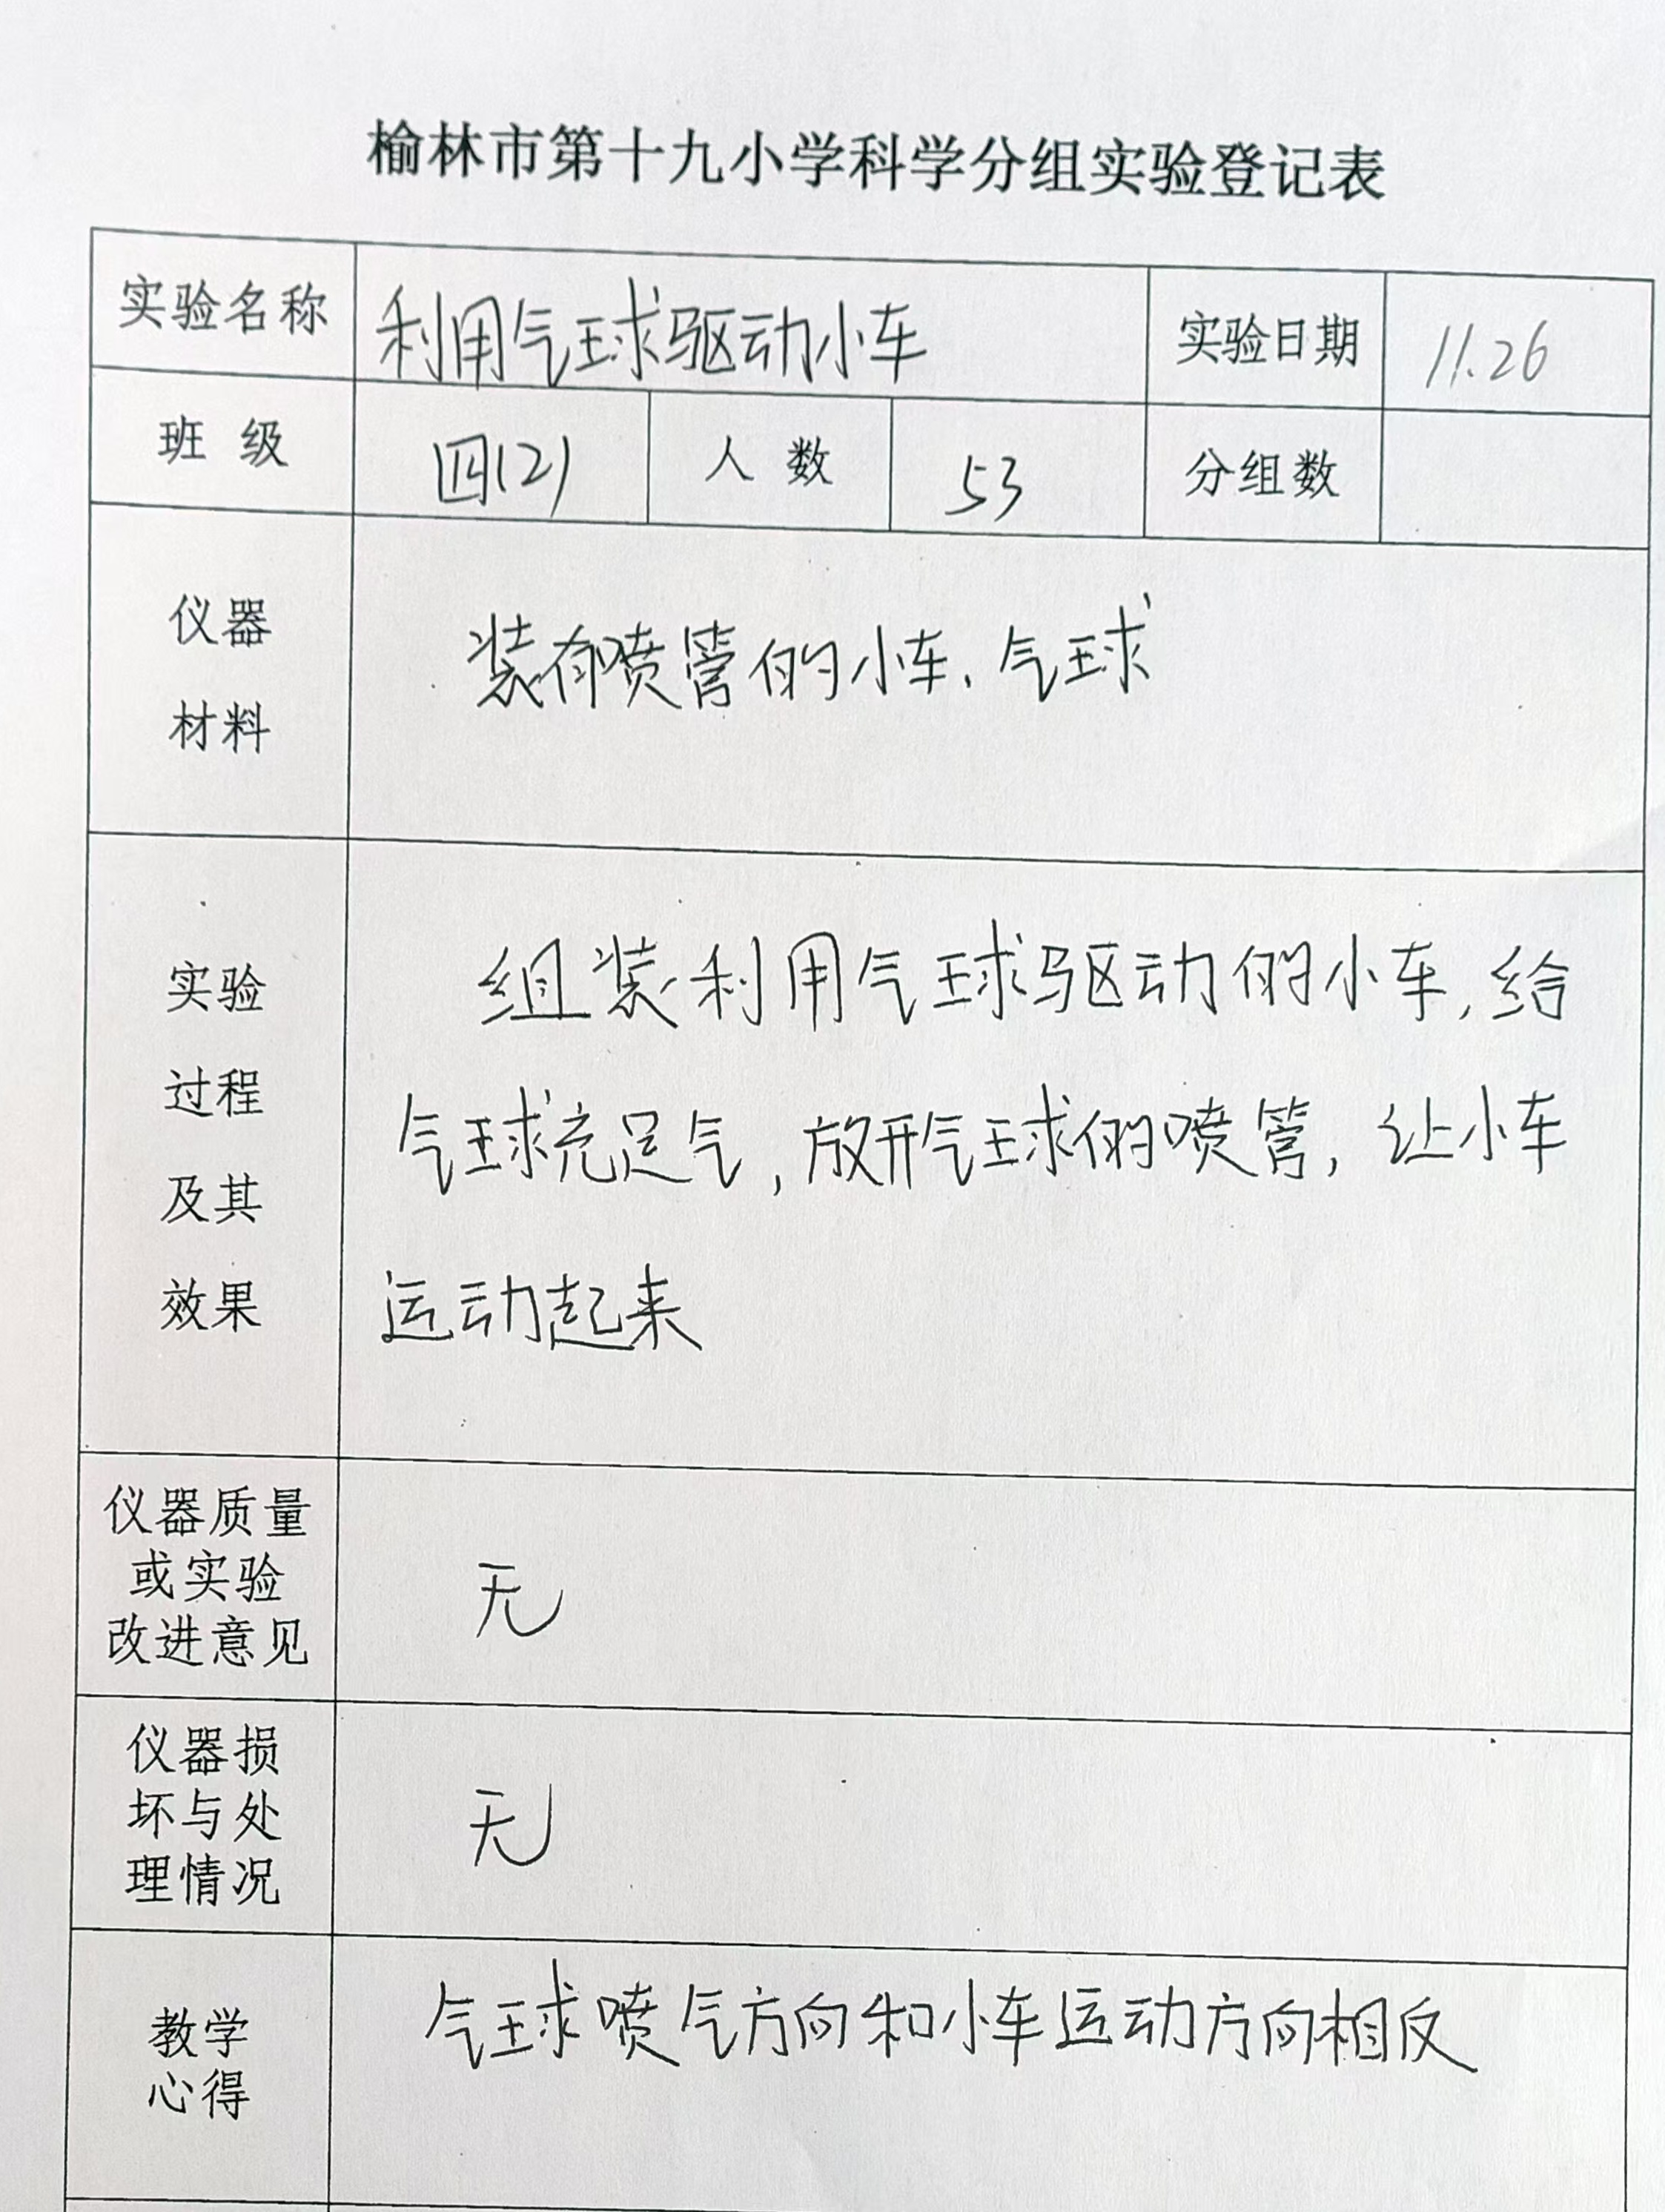 榆林市第十九小学科学分组实验登记表
实验名称 利用气球驱动小车 实验日期 11.26
班 级 四(2) 人 数 53 分组数
仪器
材料
装有喷管的小车、气球
实验
过程
及其
效果
组装利用气球驱动的小车,给
气球充足气,放开气球的喷管,让小车
运动起来
仪器质量
或实验
改进意见
无
仪器损
坏与处
理情况
无
教学
心得
气球喷气方向和小车运动方向相反